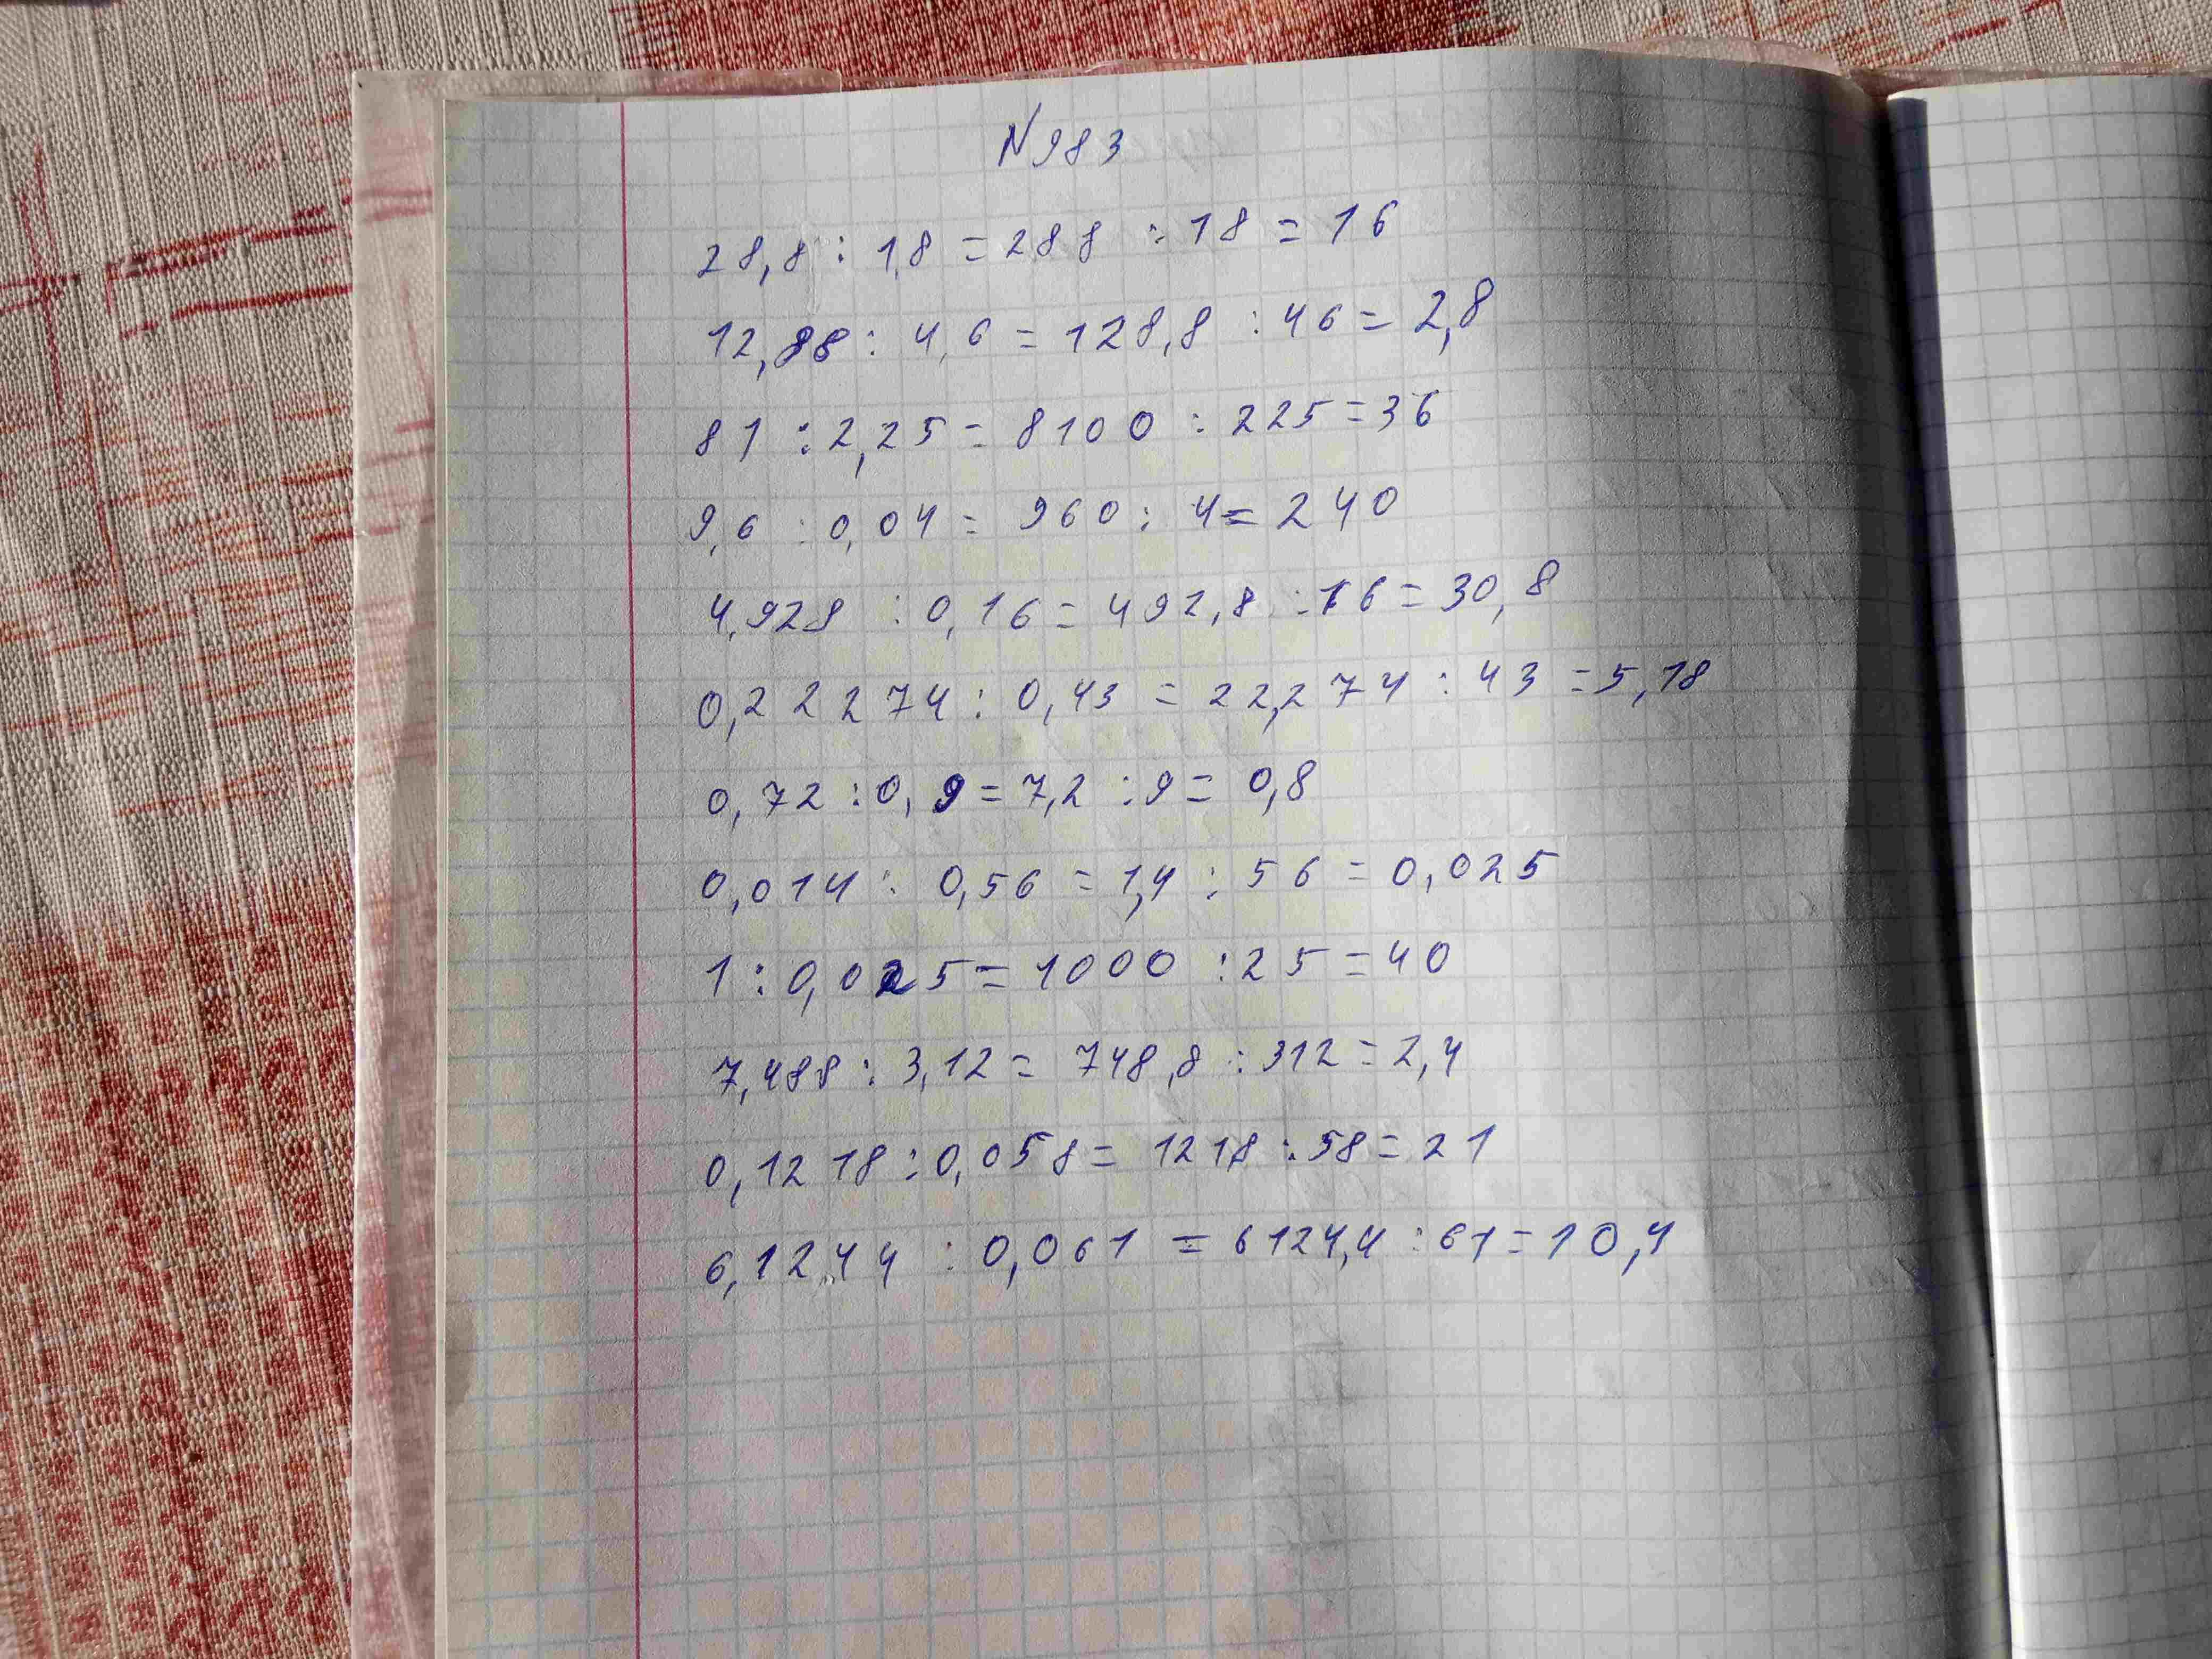 N 983
28,8 : 1,8 = 288 : 18 = 16
12,88 : 4,6 = 128,8 : 46 = 2,8
81 : 2,25 = 8100 : 225 = 36
9,6 : 0,04 = 960 : 4 = 240
4,928 : 0,16 = 492,8 : 16 = 30,8
0,22274 : 0,43 = 22,274 : 43 = 5,18
0,72 : 0,9 = 7,2 : 9 = 0,8
0,014 : 0,56 = 1,4 : 56 = 0,025
1 : 0,025 = 1000 : 25 = 40
7,488 : 3,12 = 748,8 : 312 = 2,4
0,1218 : 0,058 = 1218 : 58 = 21
6,1244 : 0,061 = 6124,4 : 61 = 10,4